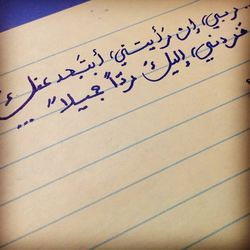 ربي، إن رأيتني، أبتعد عنك
فردني، إليك ردّاً جميلاً ...